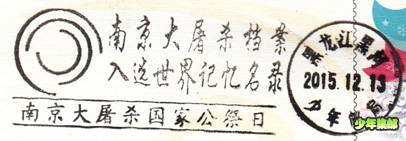 南京大屠杀档案
入选世界记忆名录
南京大屠杀国家公祭日
黑龙江黑河
2015.12.13
少年集邮